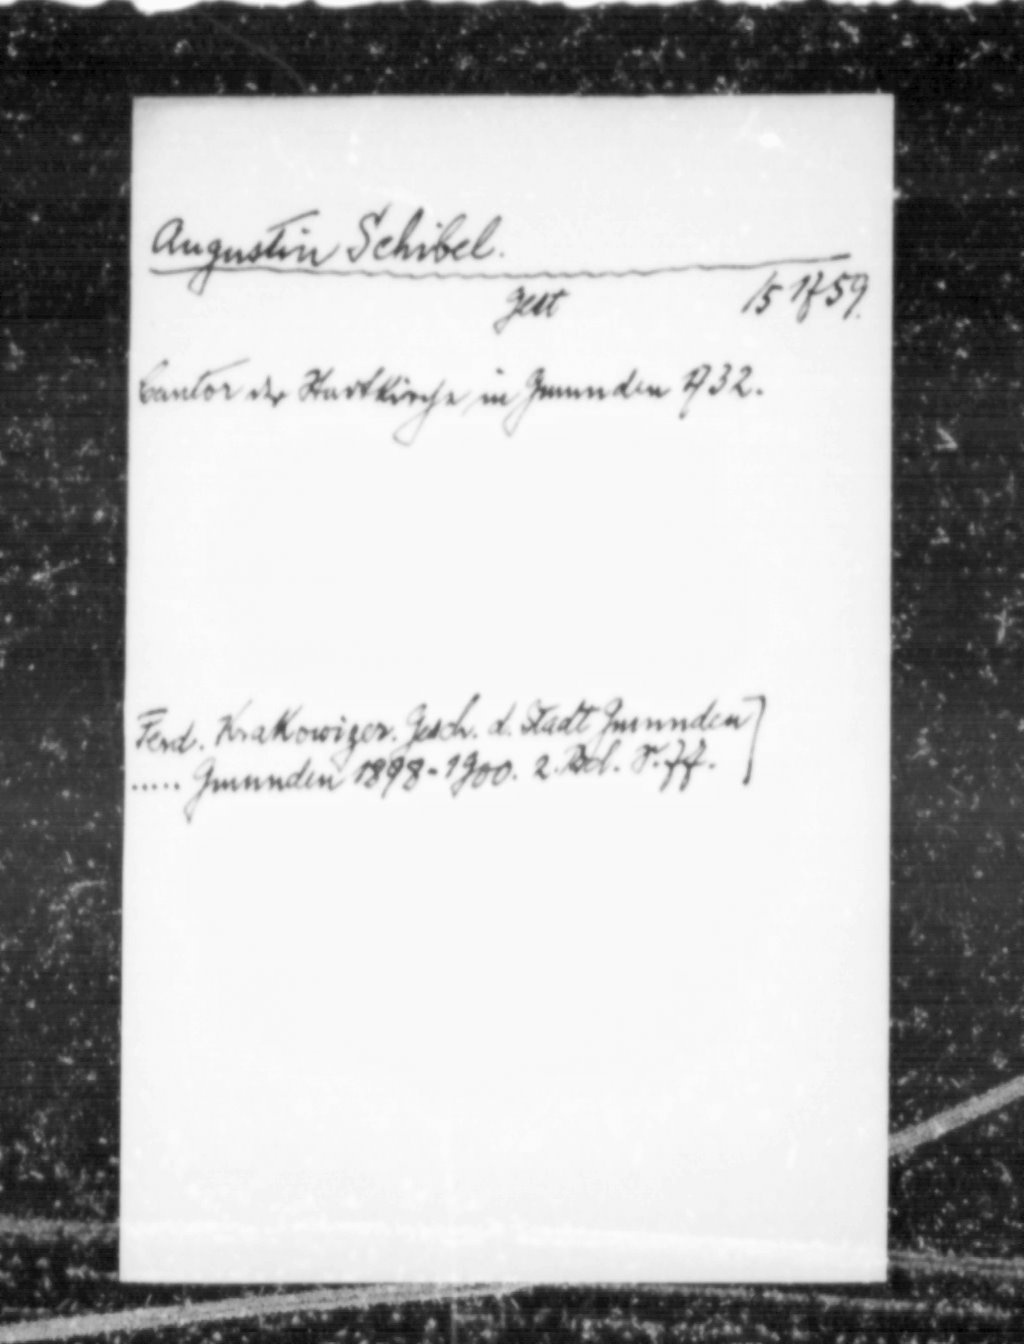 Augustin Schibel.
gest 15 1759.
Cantor der Stadtkirche in Gmunden 1732.
Ferd. Krakowizer. Gesch. d. Stadt Gmunden
..... Gmunden 1898-1900. 2. Bd. S. ff.